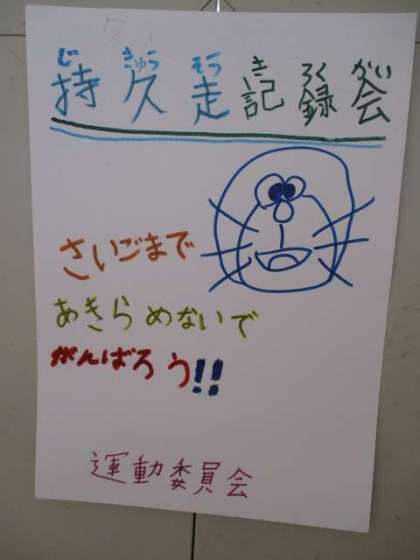 じ きゅう そう き ろく かい
持久走記録会
さいごまで
あきらめないで
がんばろう!!
運動委員会